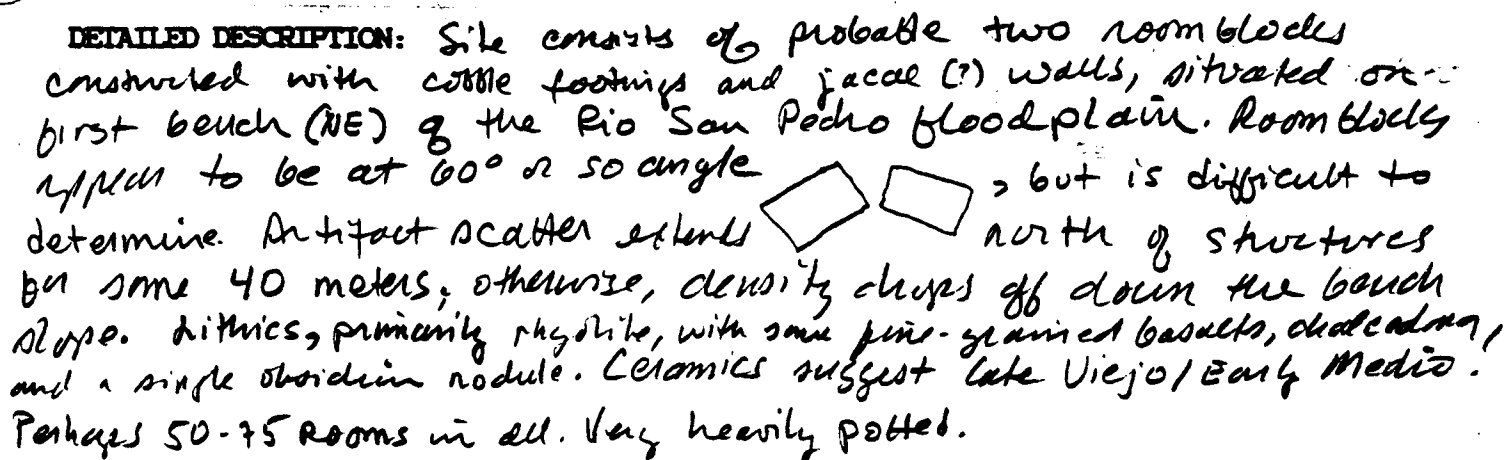 DETAILED DESCRIPTION: Site consists of probable two roomblocks
constructed with cobble footings and jacal (?) walls, situated on
first bench (NE) of the Rio San Pedro floodplain. Roomblocks
appear to be at 60° or so angle , but is difficult to
determine. Artifact scatter extends north of structures
for some 40 meters; otherwise, density drops off down the bench
slope. Lithics, primarily rhyolite, with some fine-grained basalts, chalcedony,
and a single obsidian nodule. Ceramics suggest late Viejo/Early Medio.
Perhaps 50-75 Rooms in all. Very heavily potted.